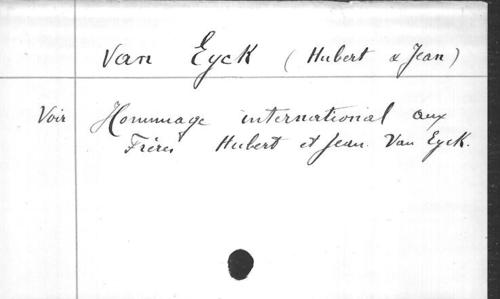 Van Eyck (Hubert & Jean)
Voir Hommage international aux
Frères Hubert et Jean Van Eyck.